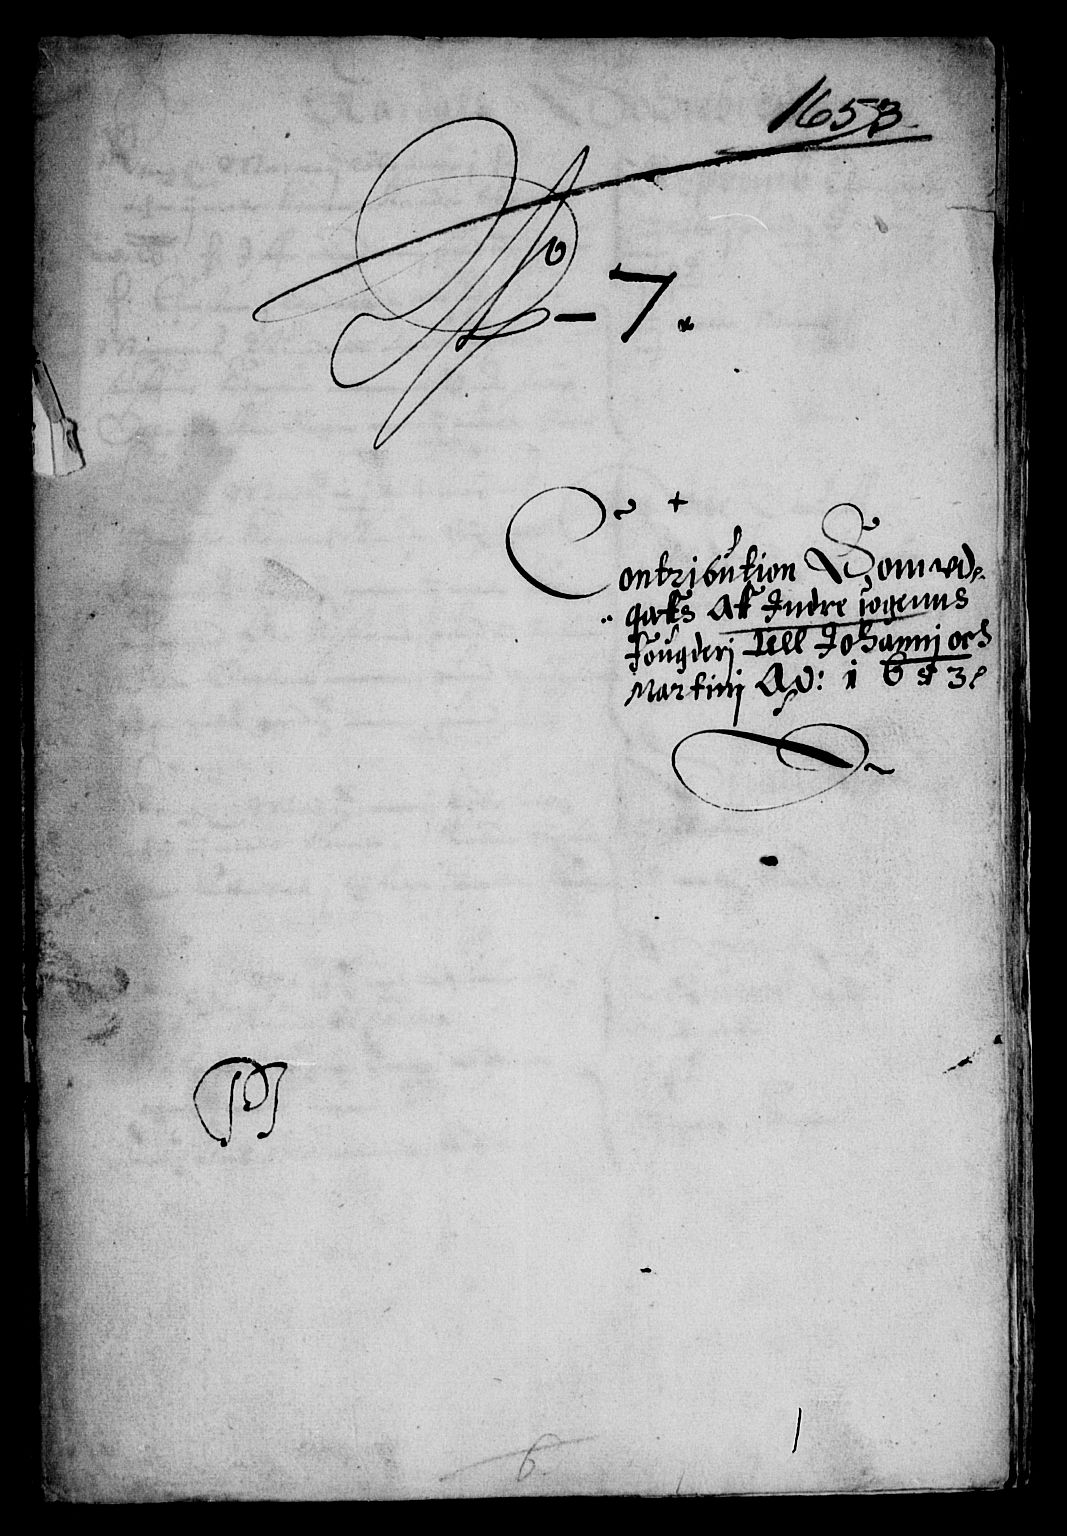 1653
No - 7.
Contribution Som vd-
gaks Aff Indre Sogenns
Fougderj Till Johannj och
Martinj Ad: 1653
6
1